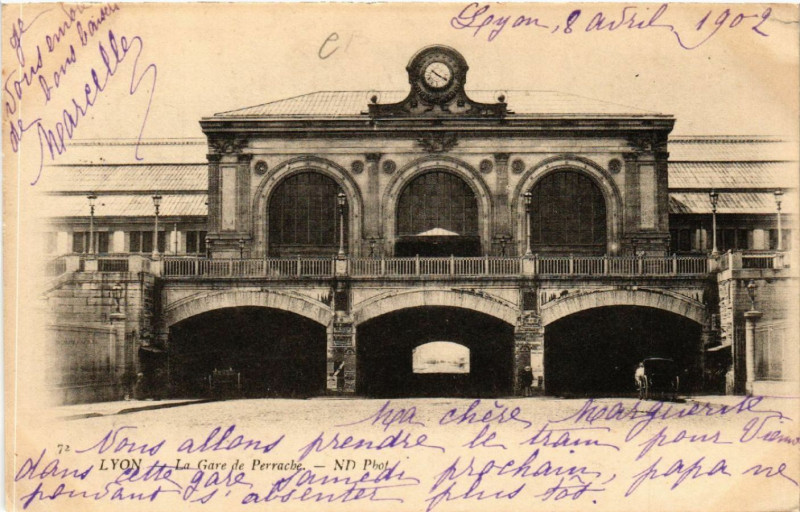 Lyon, 8 avril 1902
ge
Vous envoi
de bons baisers
Marcelle
Ma chère Marguerite
Nous allons prendre le train pour Vienne
72
LYON — La Gare de Perrache. — ND Phot.
dans cette gare samedi prochain, papa ne
pouvant s'absenter plus tôt.